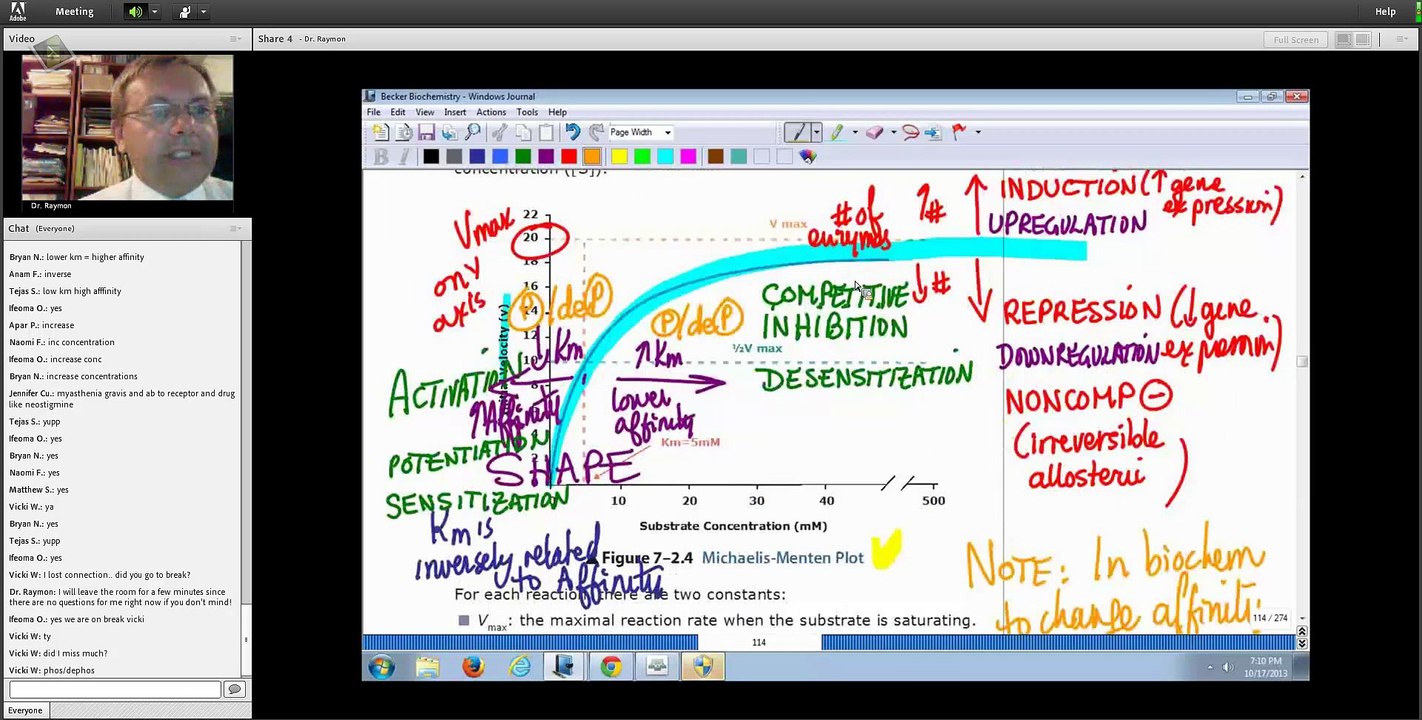 Adobe
Meeting
Help
Video
Share 4 - Dr. Raymon
Full Screen
Dr. Raymon
Chat (Everyone)
Bryan N.: lower km = higher affinity
Anam F.: inverse
Tejas S.: low km high afffinity
Ifeoma O.: yes
Apar P.: increase
Naomi F.: inc concentration
Ifeoma O.: increase conc
Bryan N.: increase concentrations
Jennifer Cu.: myasthenia gravis and ab to receptor and drug
like neostigmine
Tejas S.: yupp
Ifeoma O.: yes
Bryan N.: yes
Naomi F.: yes
Matthew S.: yes
Vicki W.: ya
Bryan N.: yes
Tejas S.: yupp
Ifeoma O.: yes
Vicki W: I lost connection.. did you go to break?
Dr. Raymon: I will leave the room for a few minutes since
there are no questions for me right now if you don't mind!
Ifeoma O.: yes we are on break vicki
Vicki W: ty
Vicki W: did I miss much?
Vicki W: phos/dephos
Everyone
Becker Biochemistry - Windows Journal
File Edit View Insert Actions Tools Help
Page Width
concentration ([S]).
Vmax
only
axis
22
20
18
16
14
12
10
8
4
2
Velocity (v)
V max
# of
enzymes
↑#
↓#
INDUCTION (↑ gene
expression)
UPREGULATION
P/deP
P/deP
COMPETITIVE
INHIBITION
½V max
DESENSITIZATION
REPRESSION (↓ gene
expression)
DOWNREGULATION
NONCOMP ⊖
(irreversible
allosteric
)
↓Km
↑Km
ACTIVATION
↑Affinity
lower
affinity
POTENTIATION
Km=5mM
SHAPE
SENSITIZATION
0 10 20 30 40 500
Substrate Concentration (mM)
Km is
inversely related
to Affinity
Figure 7–2.4 Michaelis-Menten Plot
NOTE: In biochem
to change affinity
For each reaction, there are two constants:
Vmax: the maximal reaction rate when the substrate is saturating.
114 / 274
114
7:10 PM
10/17/2013